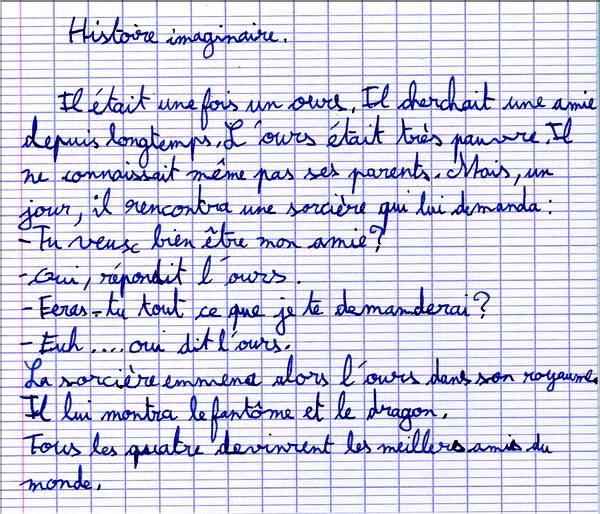 Histoire imaginaire.
Il était une fois un ours. Il cherchait une amie
depuis longtemps. L'ours était très pauvre. Il
ne connaissait même pas ses parents. Mais, un
jour, il rencontra une sorcière qui lui demanda :
- Tu veux bien être mon amie ?
- Oui, répondit l'ours.
- Feras-tu tout ce que je te demanderai ?
- Euh .... oui dit l'ours.
La sorcière emmena alors l'ours dans son royaume.
Il lui montra le fantôme et le dragon.
Tous les quatre devinrent les meillers amis du
monde.